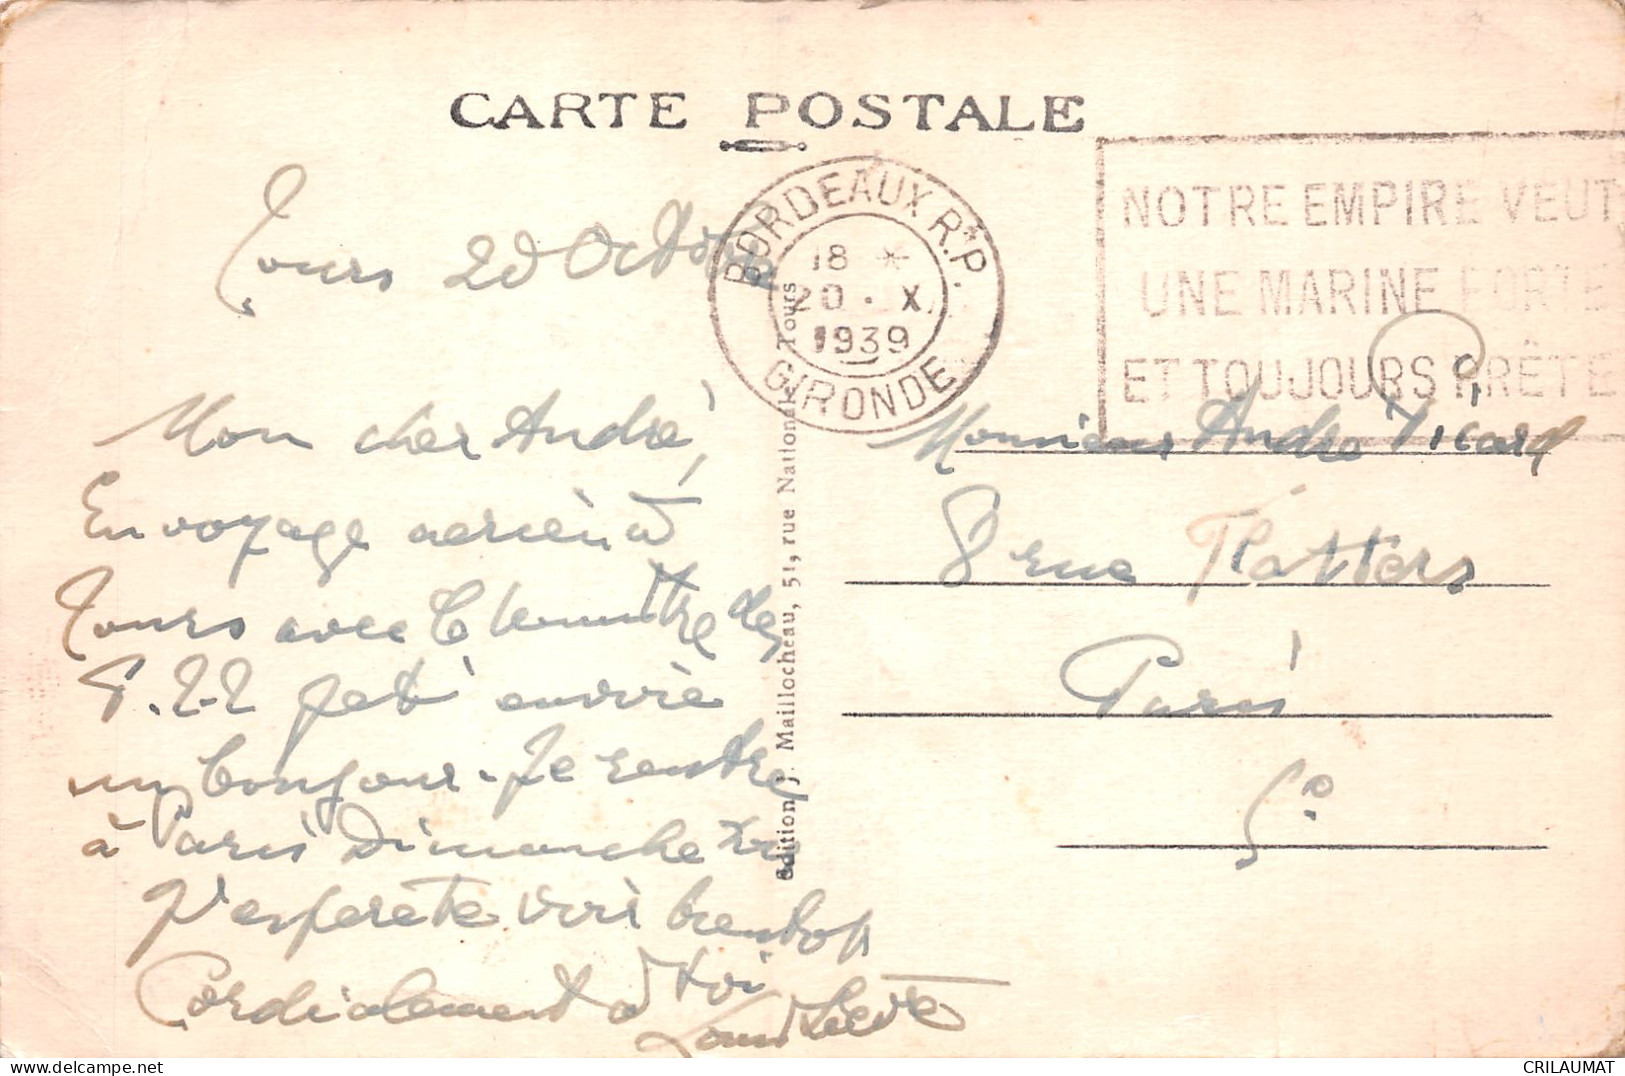 CARTE POSTALE
BORDEAUX R.P.
18 *
20 . X
1939
GIRONDE
NOTRE EMPIRE VEUT
UNE MARINE FORTE
ET TOUJOURS PRÊTE
Tours 20 Octobre
Mon cher André,
En voyage aerien à
Tours avec le
P. 22 je t'envoie
un bonjour. Je rentre
à Paris Dimanche
J'espere te voir bientot
Cordialement à toi
Edition J. Maillocheau, 51, rue Nationale, Tours
Monsieur André Picard
8 rue Flatters
Paris
5e
CRILAUMAT